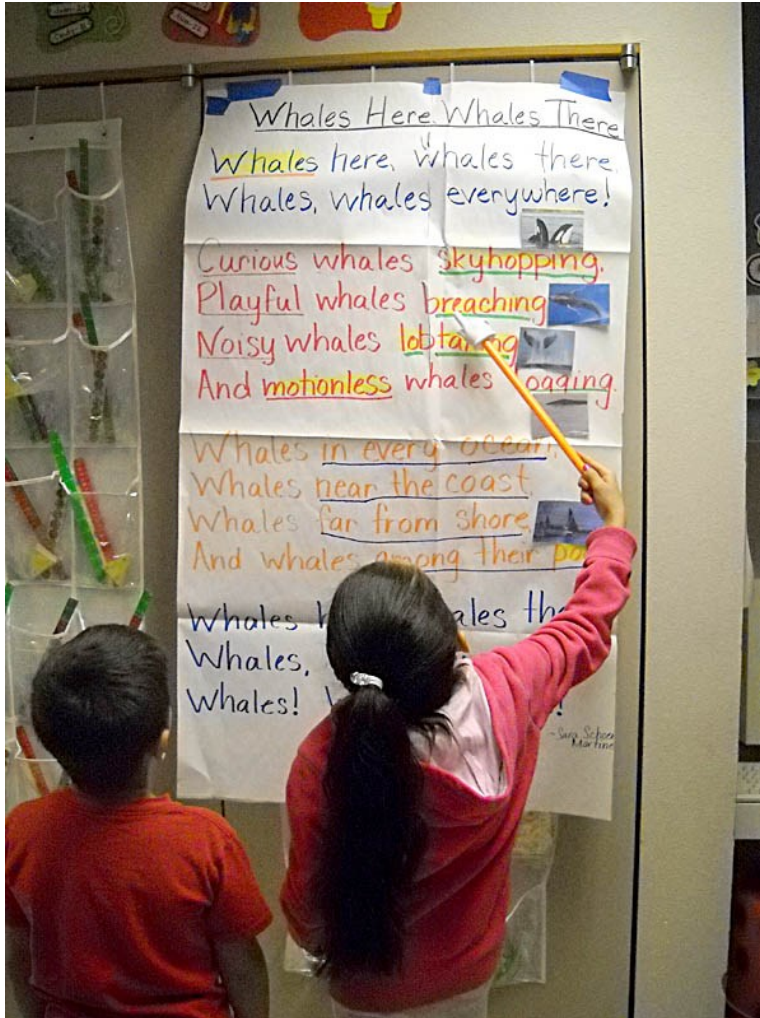 Whales Here Whales There
Whales here, whales there,
Whales, whales everywhere!
Curious whales skyhopping.
Playful whales breaching
Noisy whales
And motionless whales
Whales in every ocean,
Whales near the coast,
Whales far from shore,
And whales among their
Whales ales
Whales,
Whales!
-Sara